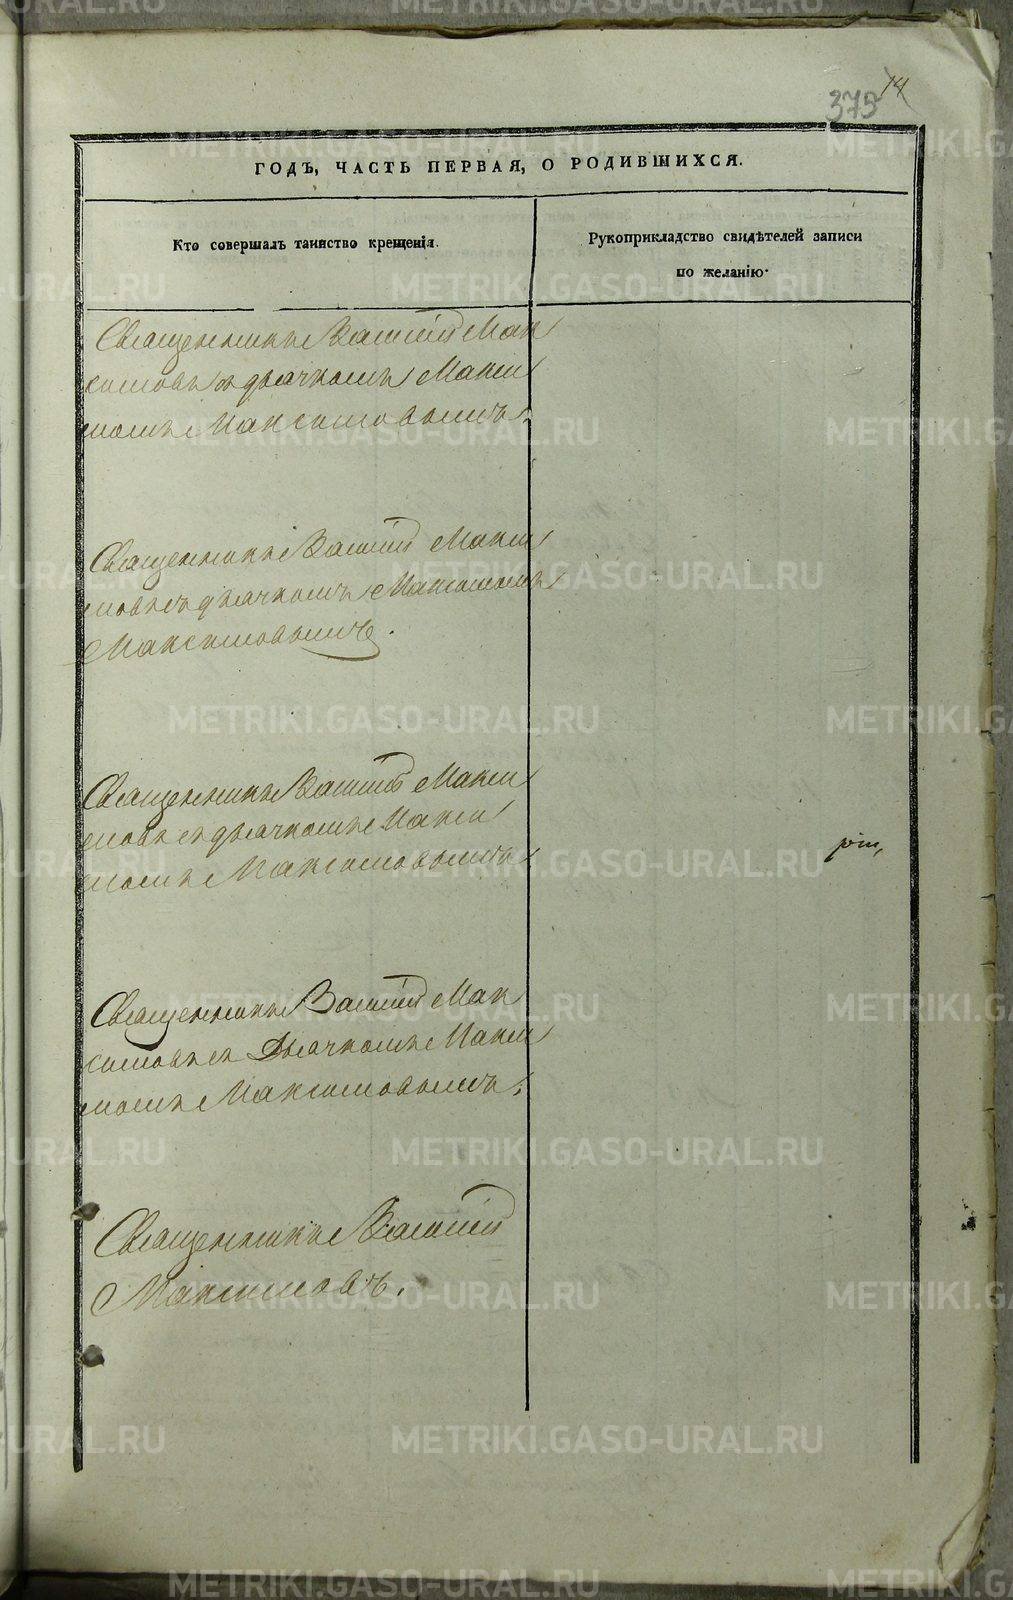 375 14
ГОДЪ, ЧАСТЬ ПЕРВАЯ, О РОДИВШИХСЯ.
Кто совершалъ таинство крещенія.
Рукоприкладство свидѣтелей записи
по желанію.
Священникъ Василій Мак
симовъ съ дьячкомъ Макси
момъ Максимовымъ.
Священникъ Василій Макси
мовъ съ дьячкомъ Максимомъ
Максимовымъ.
Священникъ Василій Макси
мовъ съ дьячкомъ Макси
момъ Максимовымъ
Священникъ Василій Мак
симовъ съ Дьячкомъ Макси
момъ Максимовымъ.
Священникъ Василій
Максимовъ.
METRIKI.GASO-URAL.RU